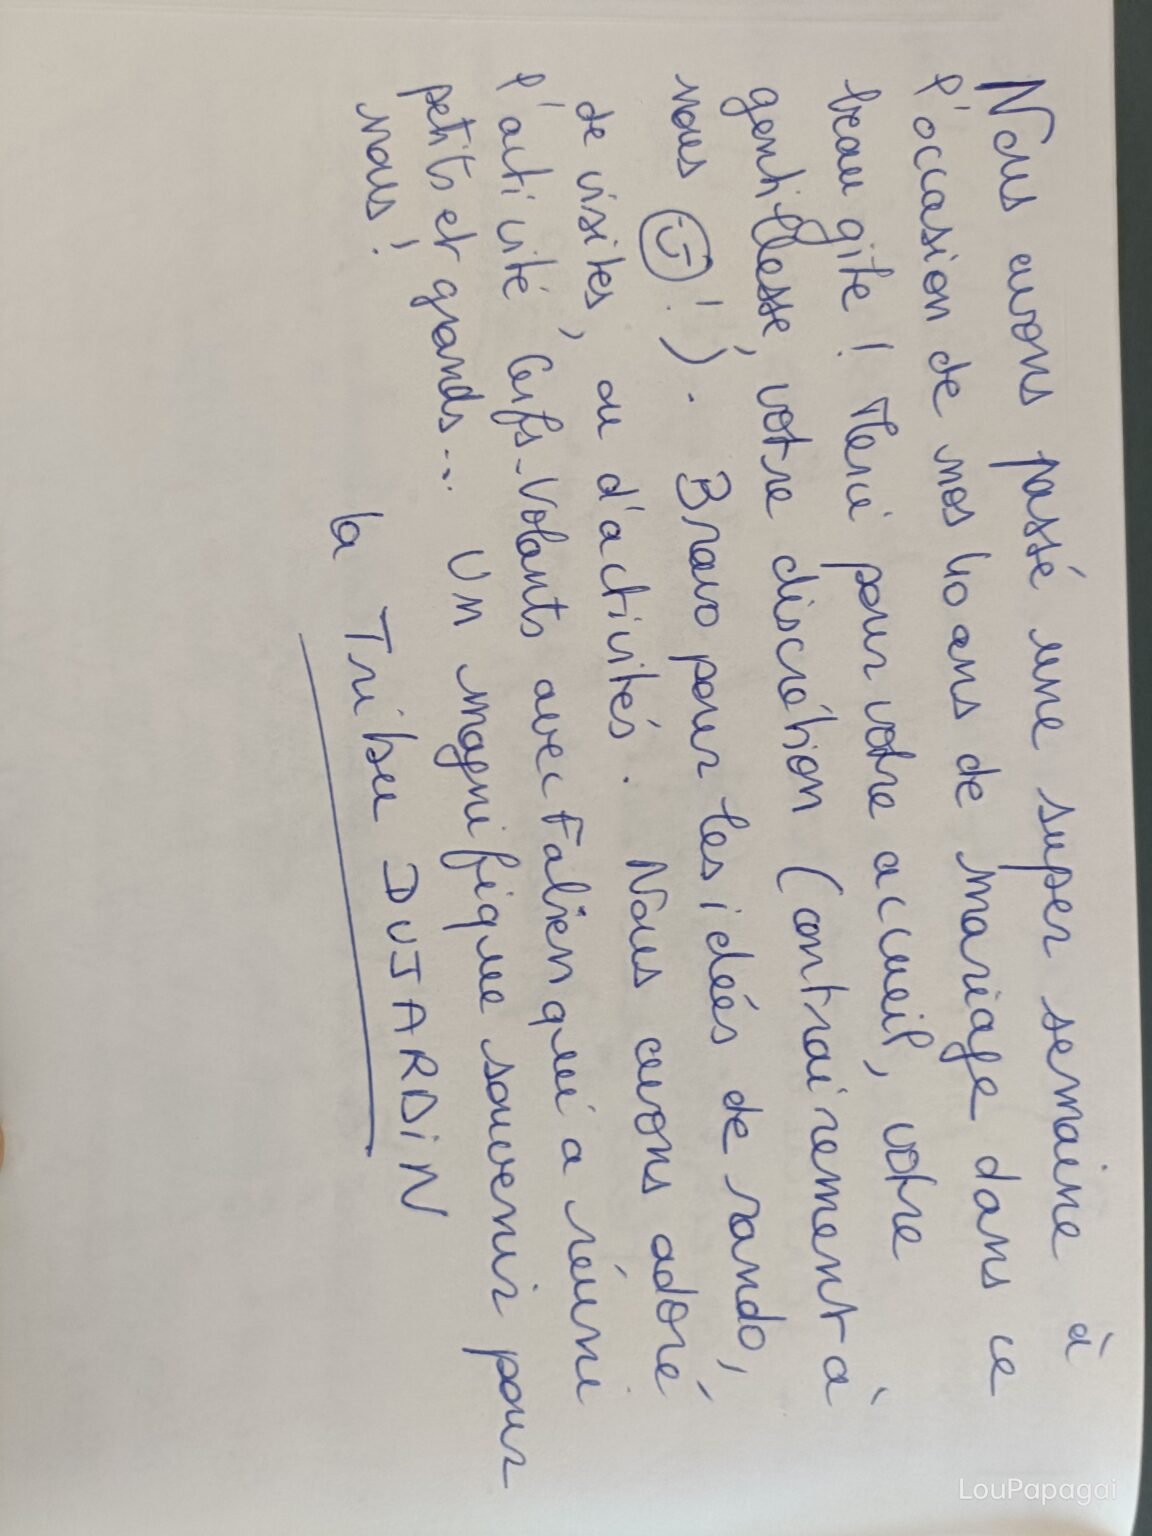 Nous avons passé une super semaine à
l'occasion de nos 40 ans de mariage dans ce
beau gîte ! Merci pour votre accueil, votre
gentillesse, votre discrétion (contrairement à
nous ☺ !). Bravo pour les idées de rando,
de visites, ou d'activités. Nous avons adoré
l'activité Cerfs-Volants avec Fabien qui a réuni
petits et grands... Un magnifique souvenir pour
nous !
la Tribu DUJARDiN
LouPapagai